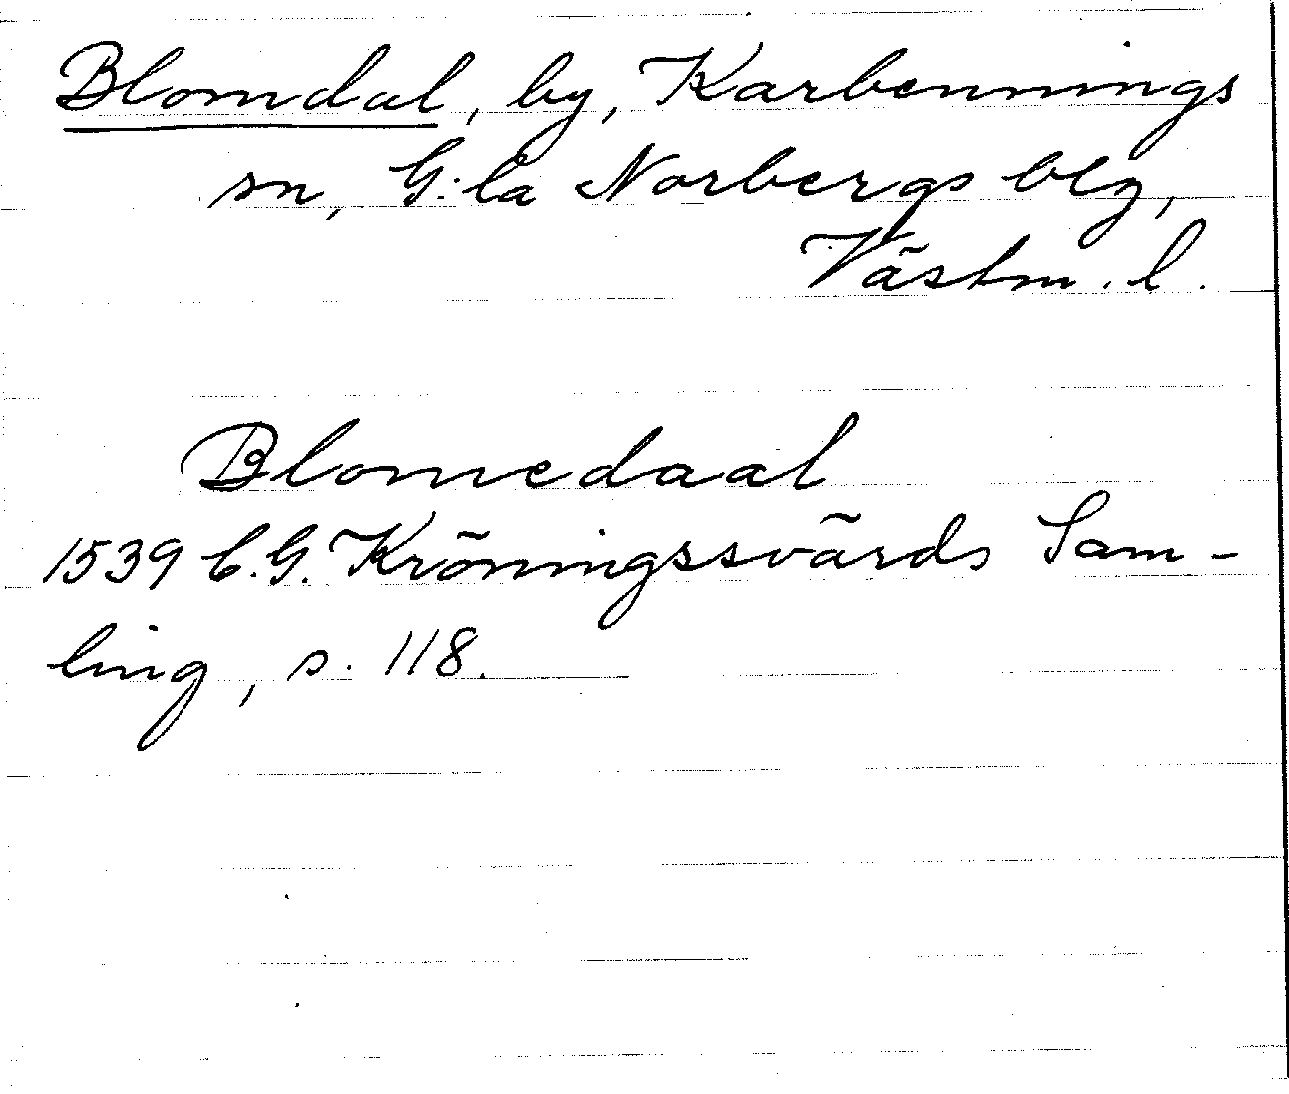 Blomdal, by, Karbennings
sn, G:la Norbergs blg,
Västm. l.
Blomedaal
1539 C.G. Kröningssvärds Sam-
ling, s. 118.